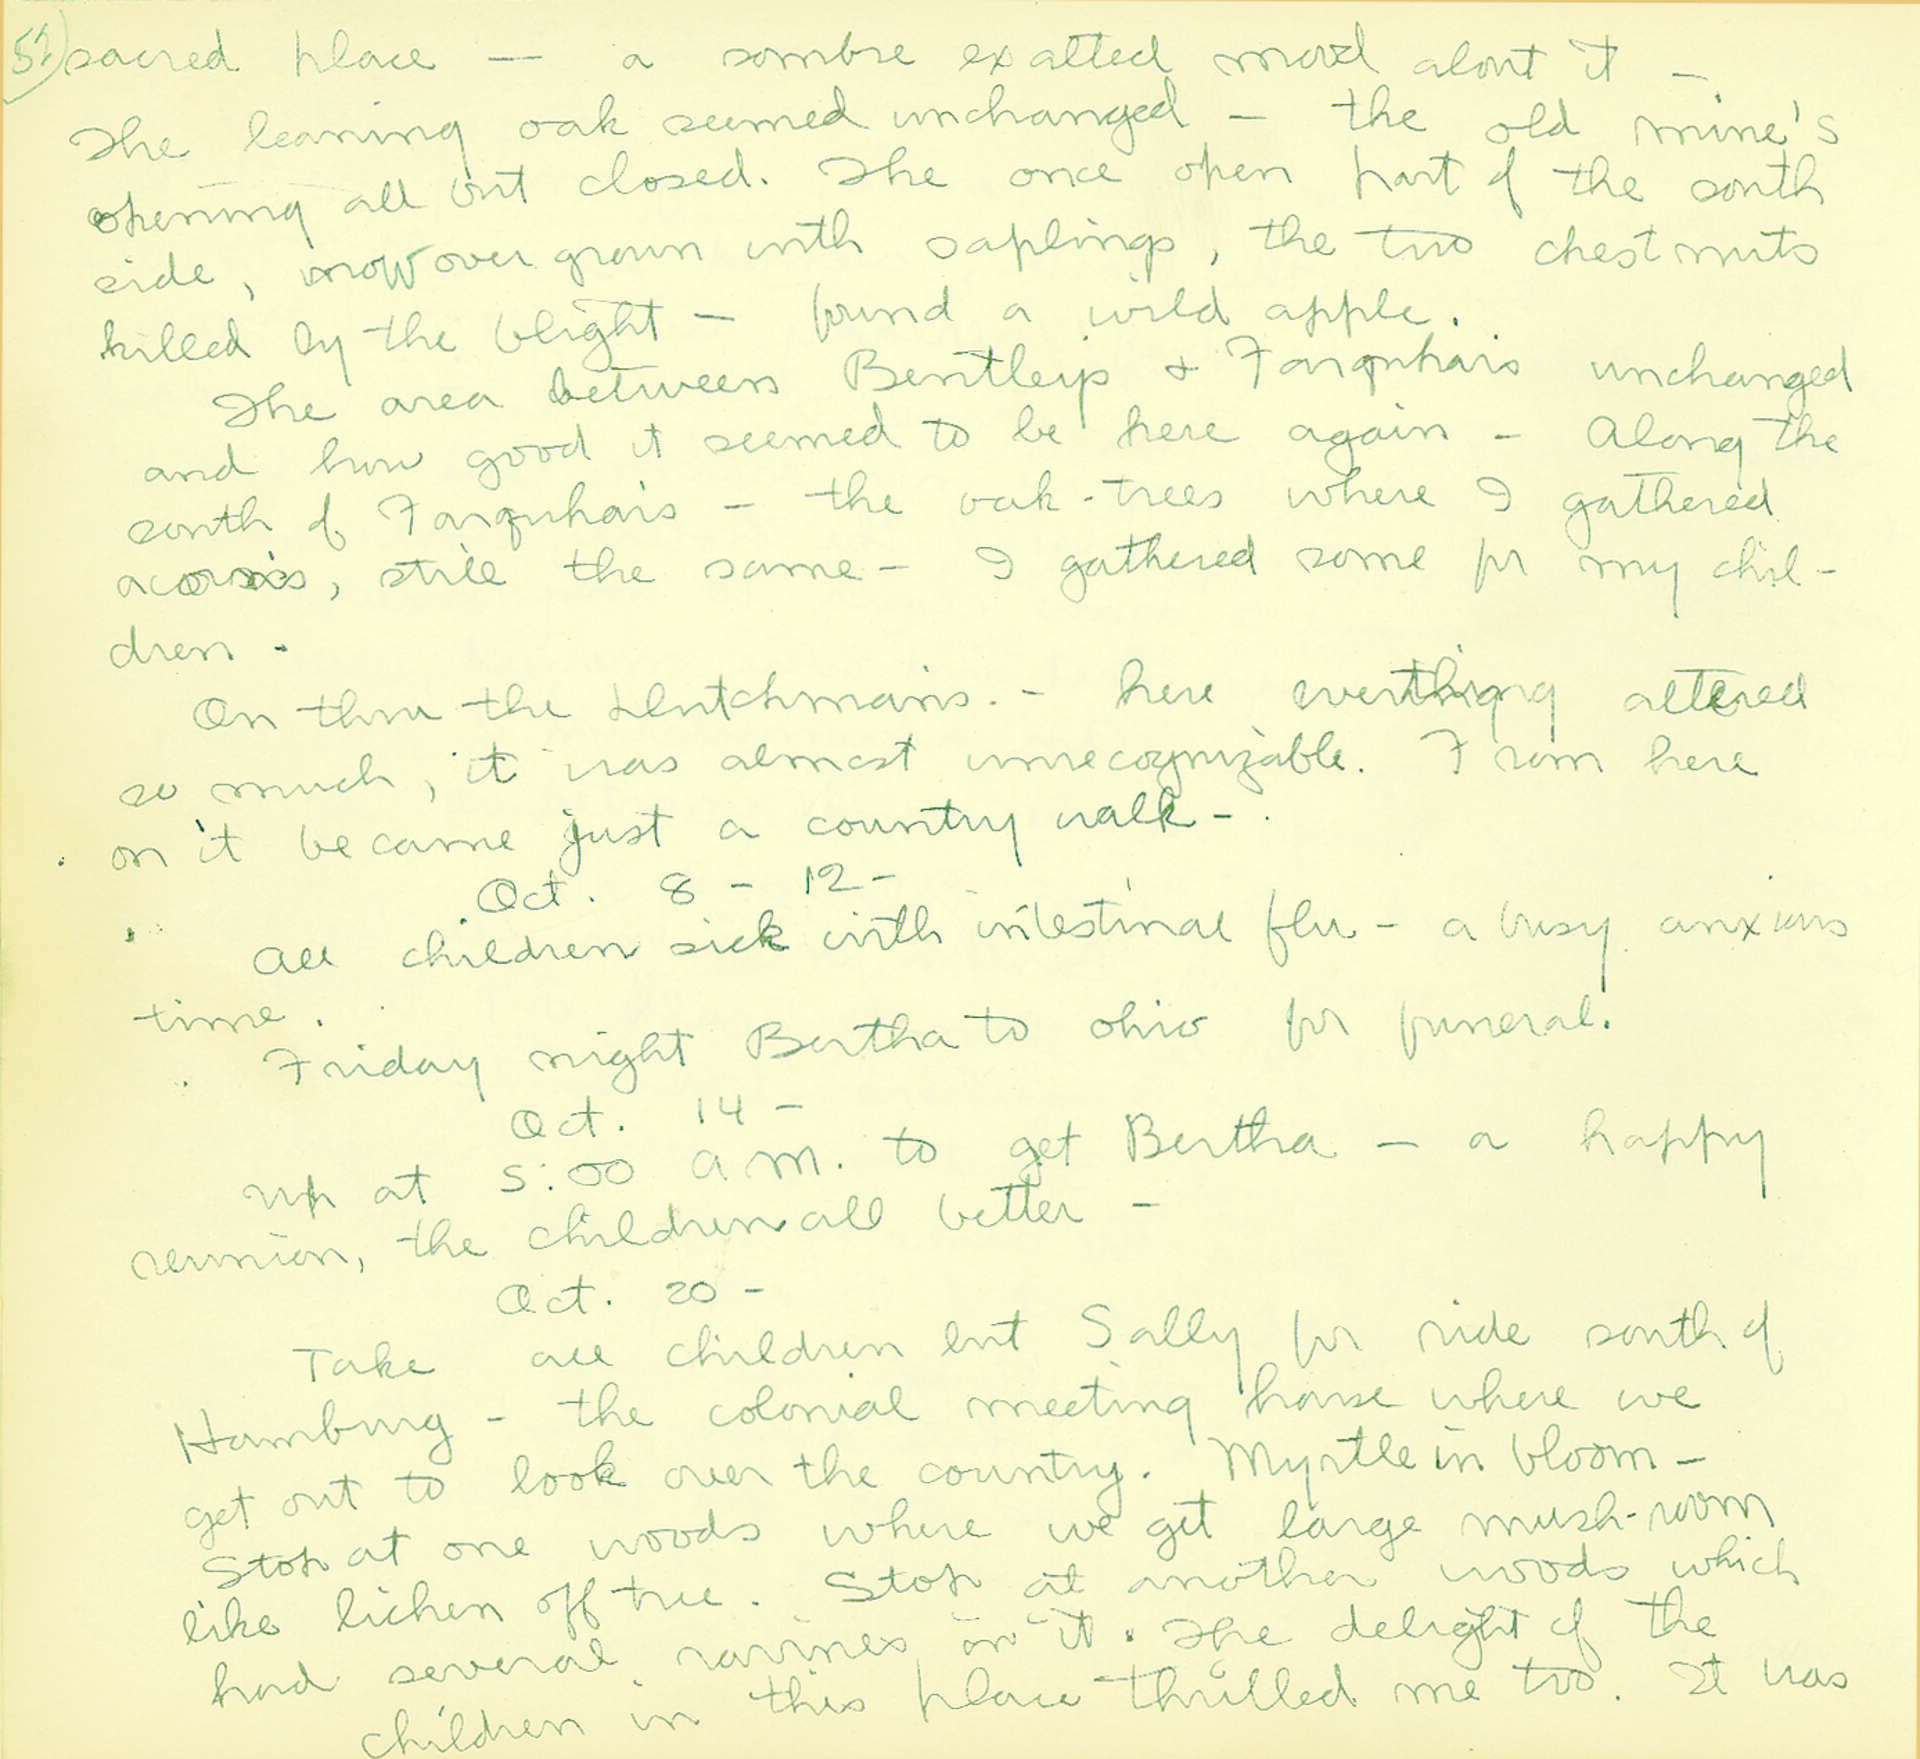 52) sacred place — a sombre exalted mood about it –
The leaning oak seemed unchanged – the old mine's
opening all but closed. The once open part of the south
side, now overgrown with saplings, the two chestnuts
killed by the blight – found a wild apple.
The area between Bentleys & Farquhars unchanged
and how good it seemed to be here again – Along the
south of Farquhars – the oak-trees where I gathered
acorns, still the same – I gathered some for my chil-
dren.
On thru the Dutchmans. – here everthing altered
so much, it was almost unrecognizable. From here
on it became just a country walk –.
Oct. 8 – 12 –
All children sick with intestinal flu – a busy anxious
time.
Friday night Bertha to Ohio for funeral.
Oct. 14 –
up at 5:00 A M. to get Bertha – a happy
reunion, the children all better –
Oct. 20 –
Take all children but Sally for ride south of
Hamburg – the colonial meeting house where we
get out to look over the country. Myrtle in bloom –
Stop at one woods where we get large mush-room
like lichen off tree. Stop at another woods which
had several ravines in it. The delight of the
children in this place thrilled me too. It was